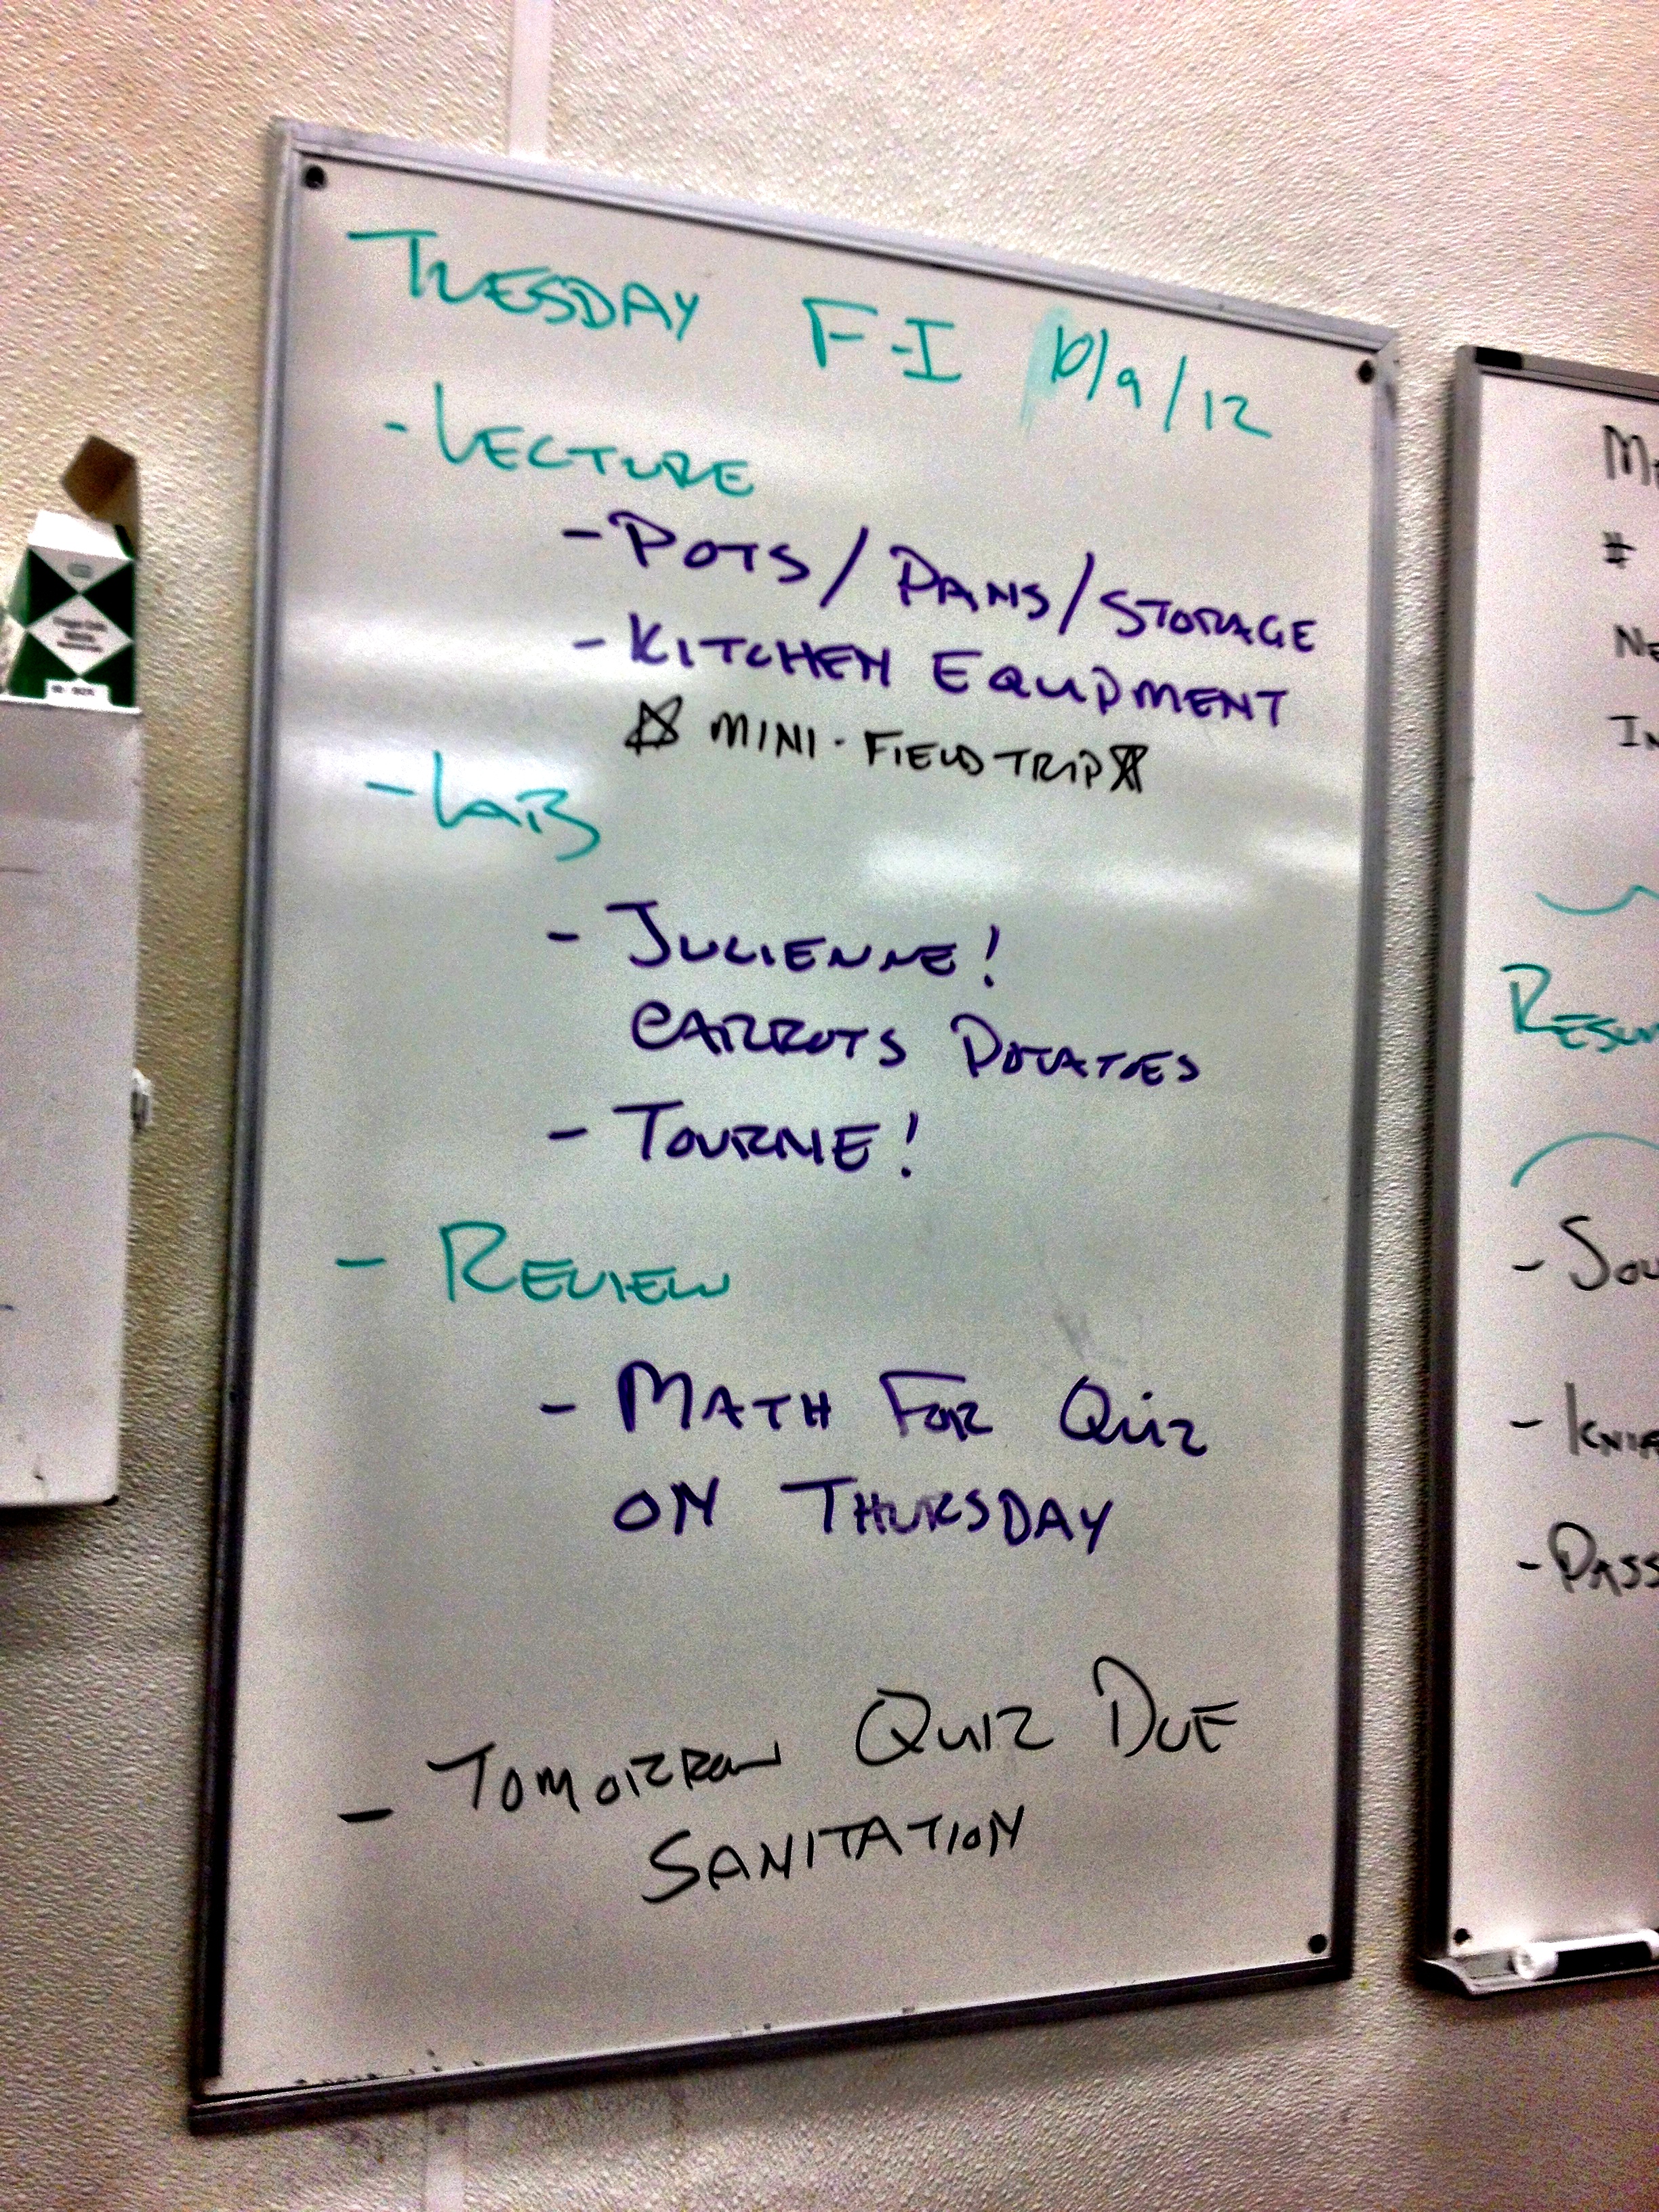 TUESDAY F-I 10/9/12
- LECTURE
- POTS / PANS / STORAGE
- KITCHEN EQUIPMENT
☆ MINI-FIELD TRIP ☆
- LAB
- JULIENNE!
CARROTS POTATOES
- TOURNE!
- REVIEW
- MATH FOR QUIZ
ON THURSDAY
- TOMORROW QUIZ DUE
SANITATION
#
- PASS